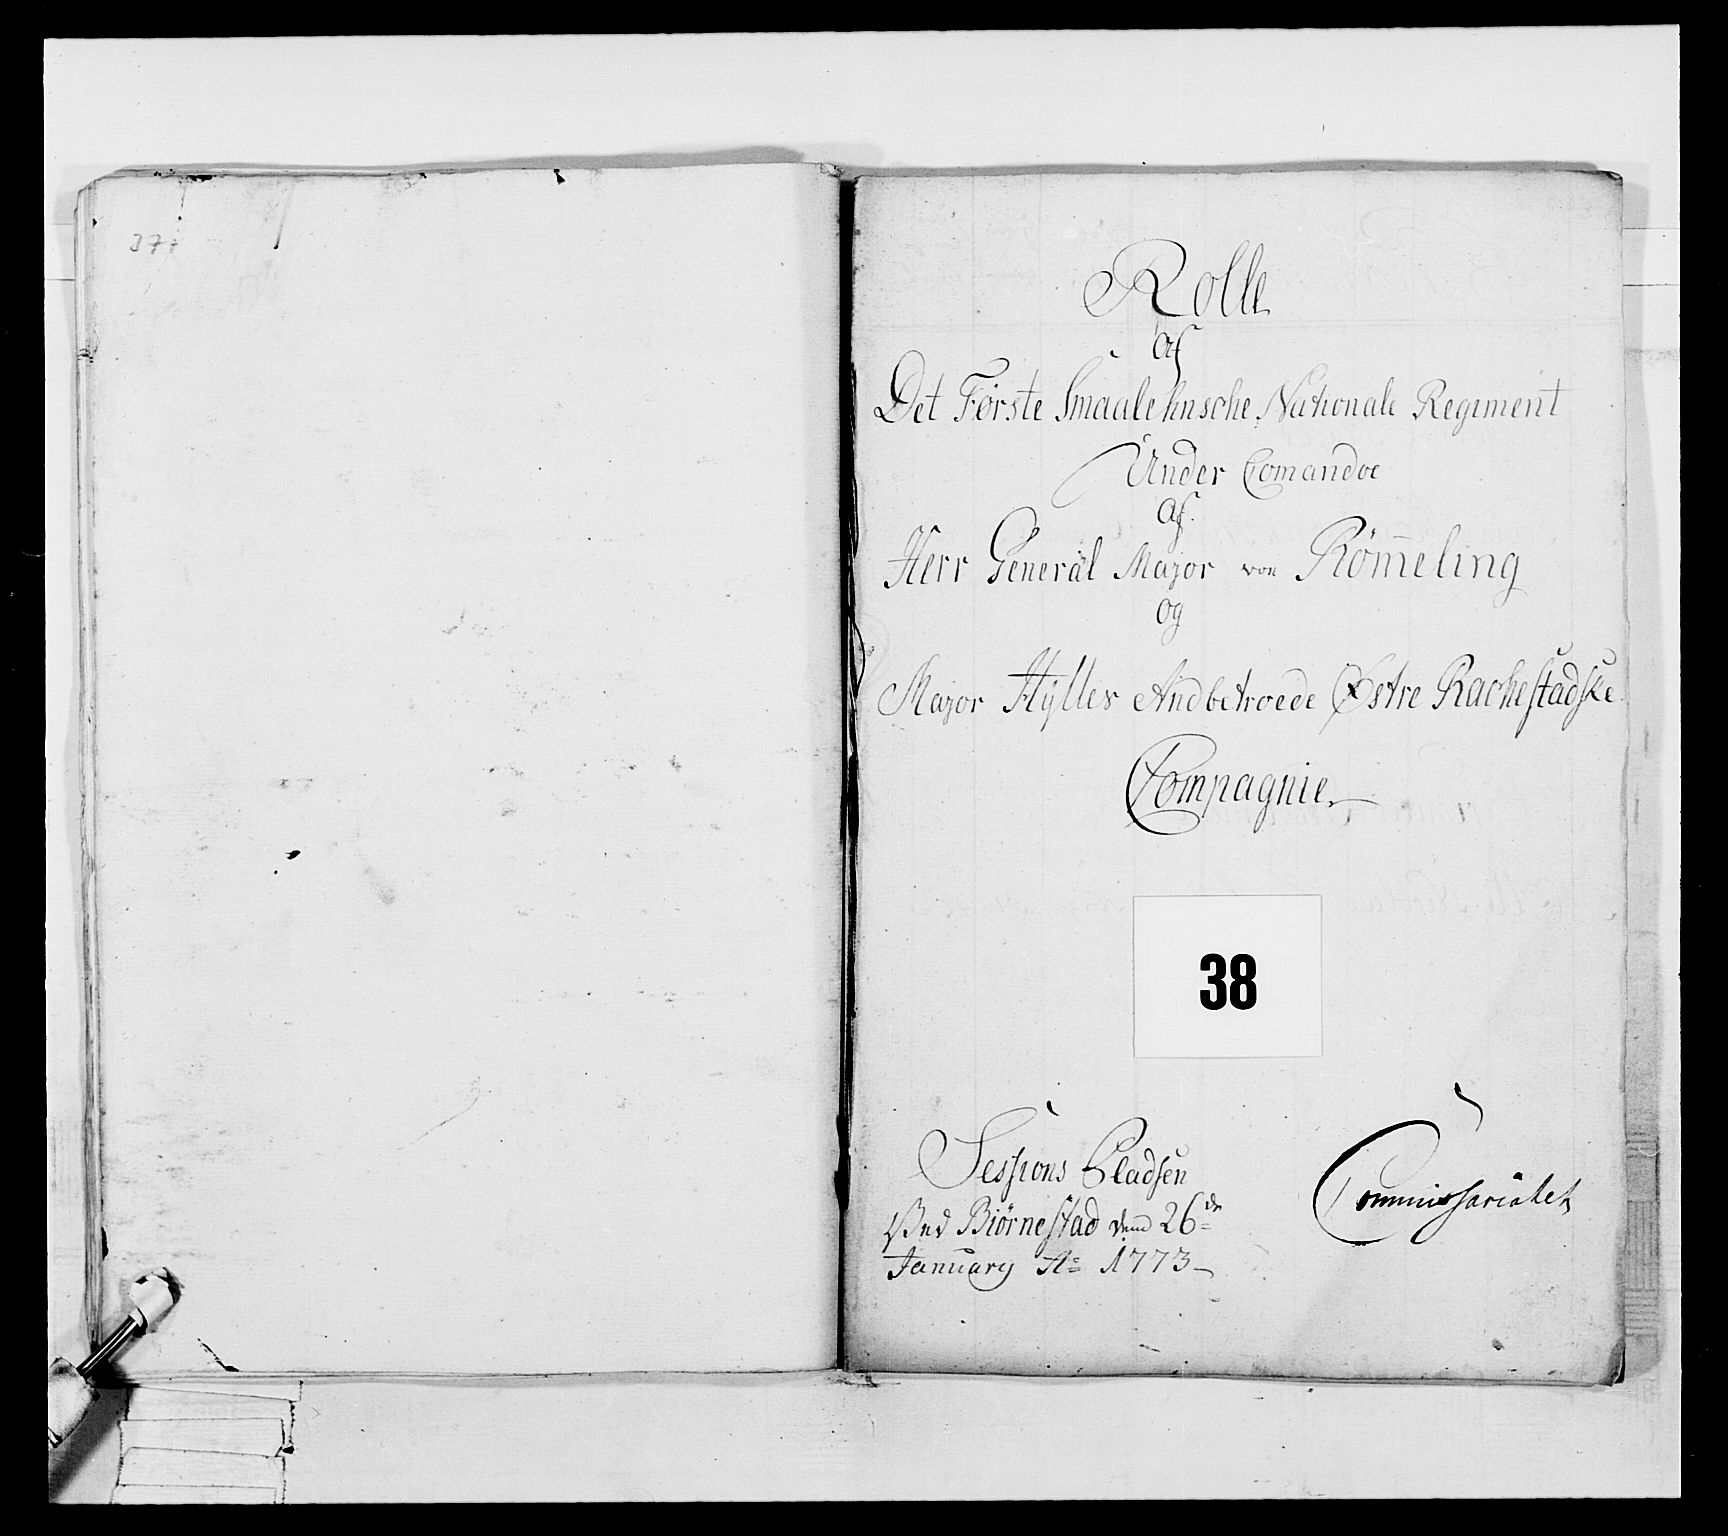 37
Rolle
af
Det Første Smaalehnsche Nationale Regiment
Under Comandoe
af
Herr General Major von Römeling
og
Major Hÿller Andbetroede Østre Rachestadske
Compagnie.
38
Sessions Pladsen
Ved Biørnestad dend 26de
January Ao 1773
Commissariatet